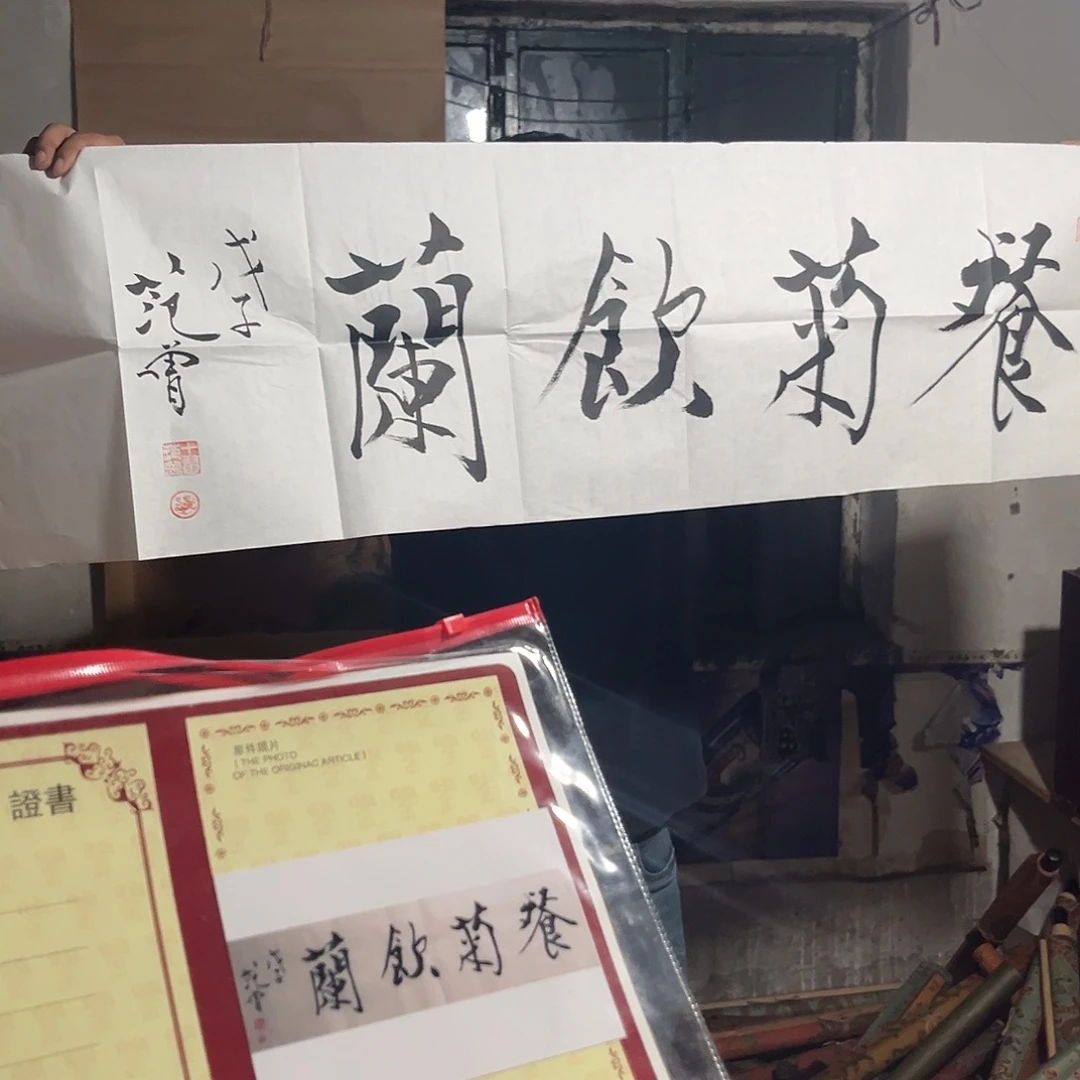 餐菊飲蘭
戊子
范曾
證書
原件照片
(THE PHOTO
OF THE ORIGINAC ARTICLE)
餐菊飲蘭
戊子
范曾